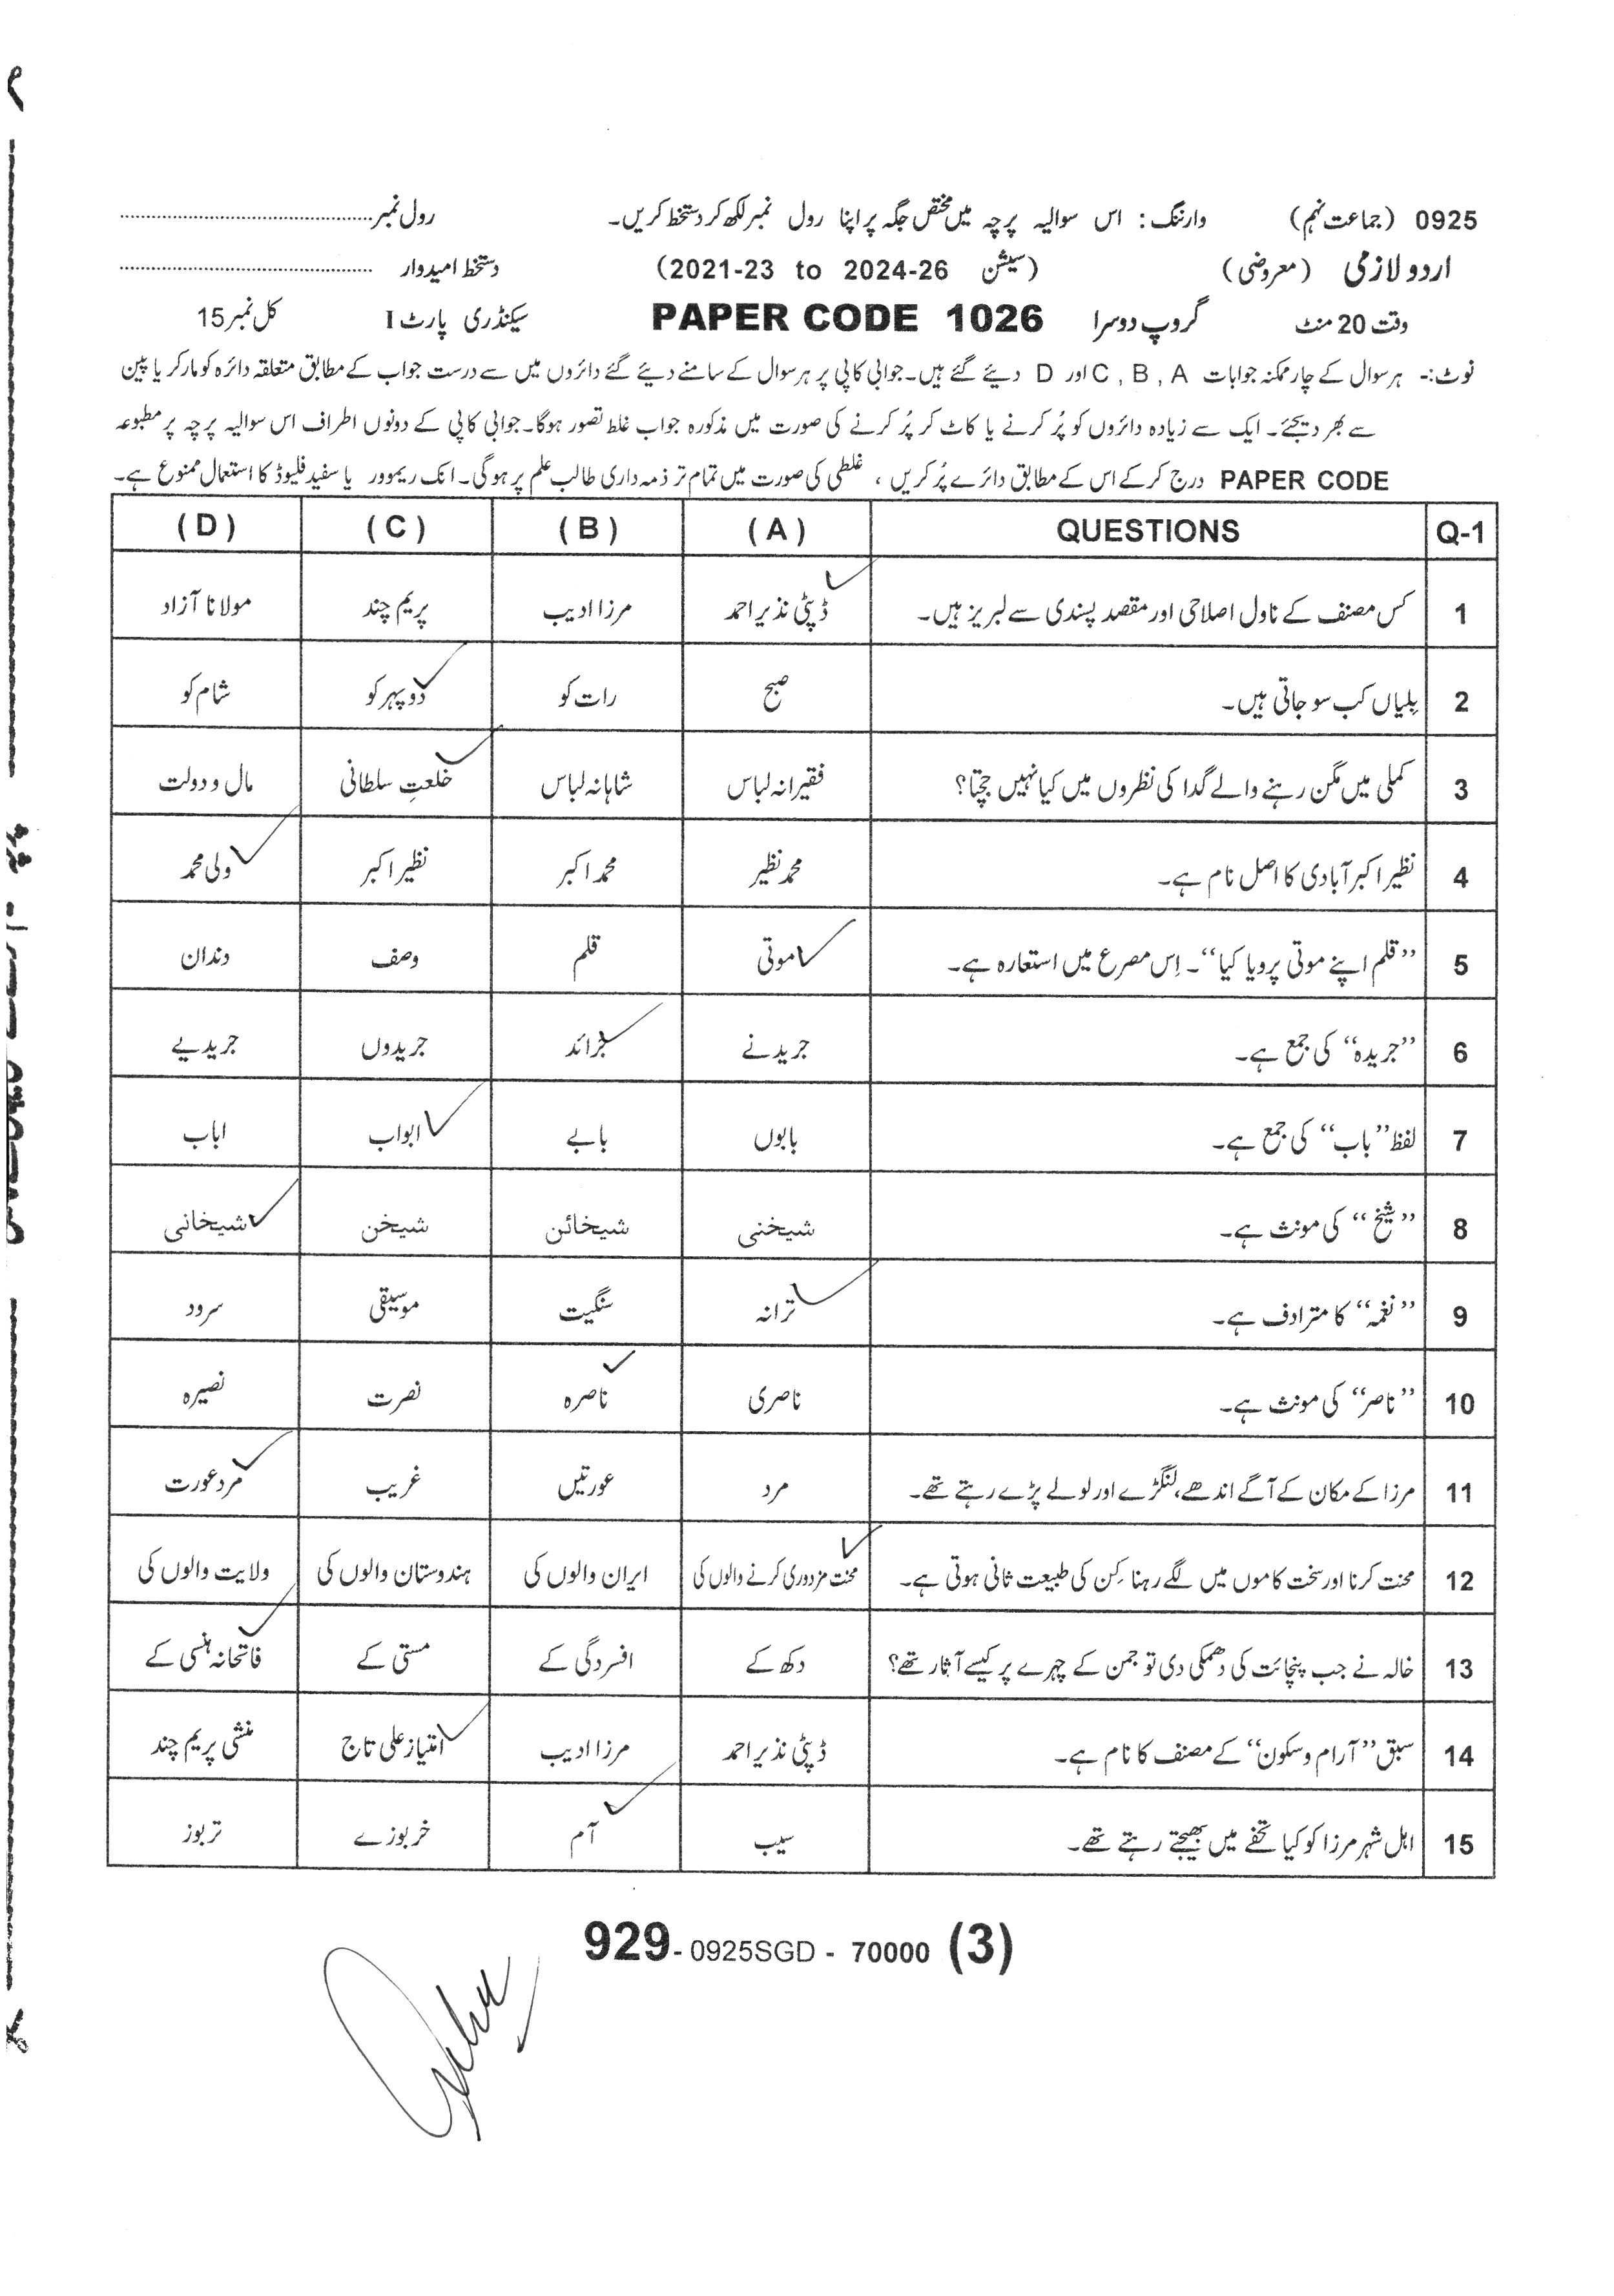 0925 (جماعت نہم) وارننگ: اس سوالیہ پرچہ میں مختص جگہ پر اپنا رول نمبر لکھ کر دستخط کریں۔ رول نمبر
اردو لازمی (معروضی) (سیشن 2021-23 to 2024-26) دستخط امیدوار
وقت 20 منٹ گروپ دوسرا PAPER CODE 1026 سیکنڈری پارٹ I کل نمبر 15
نوٹ:- ہر سوال کے چار ممکنہ جوابات A , B , C اور D دیئے گئے ہیں۔ جوابی کاپی پر ہر سوال کے سامنے دیئے گئے دائروں میں سے درست جواب کے مطابق متعلقہ دائرہ کو مارکر یا پین
سے بھر دیجئے۔ ایک سے زیادہ دائروں کو پُر کرنے یا کاٹ کر پُر کرنے کی صورت میں مذکورہ جواب غلط تصور ہوگا۔ جوابی کاپی کے دونوں اطراف اس سوالیہ پرچہ پر مطبوعہ
PAPER CODE درج کرکے اس کے مطابق دائرے پُر کریں ، غلطی کی صورت میں تمام تر ذمہ داری طالب علم پر ہوگی۔ انک ریموور یا سفید فلیوڈ کا استعمال ممنوع ہے۔
Q-1 QUESTIONS (A) (B) (C) (D)
1 کس مصنف کے ناول اصلاحی اور مقصد پسندی سے لبریز ہیں۔ ڈپٹی نذیر احمد مرزا ادیب پریم چند مولانا آزاد
2 بِلیاں کب سو جاتی ہیں۔ صبح رات کو دوپہر کو شام کو
3 کملی میں مگن رہنے والے گدا کی نظروں میں کیا نہیں جچتا؟ فقیرانہ لباس شاہانہ لباس خلعتِ سلطانی مال و دولت
4 نظیر اکبر آبادی کا اصل نام ہے۔ محمد نظیر محمد اکبر نظیر اکبر ولی محمد
5 ”قلم اپنے موتی پرویا کیا“۔ اِس مصرع میں استعارہ ہے۔ موتی قلم وصف دندان
6 ”جریدہ“ کی جمع ہے۔ جریدنے جرائد جریدوں جریدیے
7 لفظ ”باب“ کی جمع ہے۔ بابوں بابے ابواب اباب
8 ”شیخ“ کی مونث ہے۔ شیخنی شیخائن شیخن شیخانی
9 ”نغمہ“ کا مترادف ہے۔ ترانہ سنگیت موسیقی سرود
10 ”ناصر“ کی مونث ہے۔ ناصری ناصرہ نصرت نصیرہ
11 مرزا کے مکان کے آگے اندھے، لنگڑے اور لولے پڑے رہتے تھے۔ مرد عورتیں غریب مرد عورت
12 محنت کرنا اور سخت کاموں میں لگے رہنا کِن کی طبیعت ثانی ہوتی ہے۔ محنت مزدوری کرنے والوں کی ایران والوں کی ہندوستان والوں کی ولایت والوں کی
13 خالہ نے جب پنچائت کی دھمکی دی تو جمن کے چہرے پر کیسے آثار تھے؟ دکھ کے افسردگی کے مستی کے فاتحانہ ہنسی کے
14 سبق ”آرام و سکون“ کے مصنف کا نام ہے۔ ڈپٹی نذیر احمد مرزا ادیب امتیاز علی تاج منشی پریم چند
15 اہل شہر مرزا کو کیا تحفے میں بھیجتے رہتے تھے۔ سیب آم خربوزے تربوز
929- 0925SGD - 70000 (3)